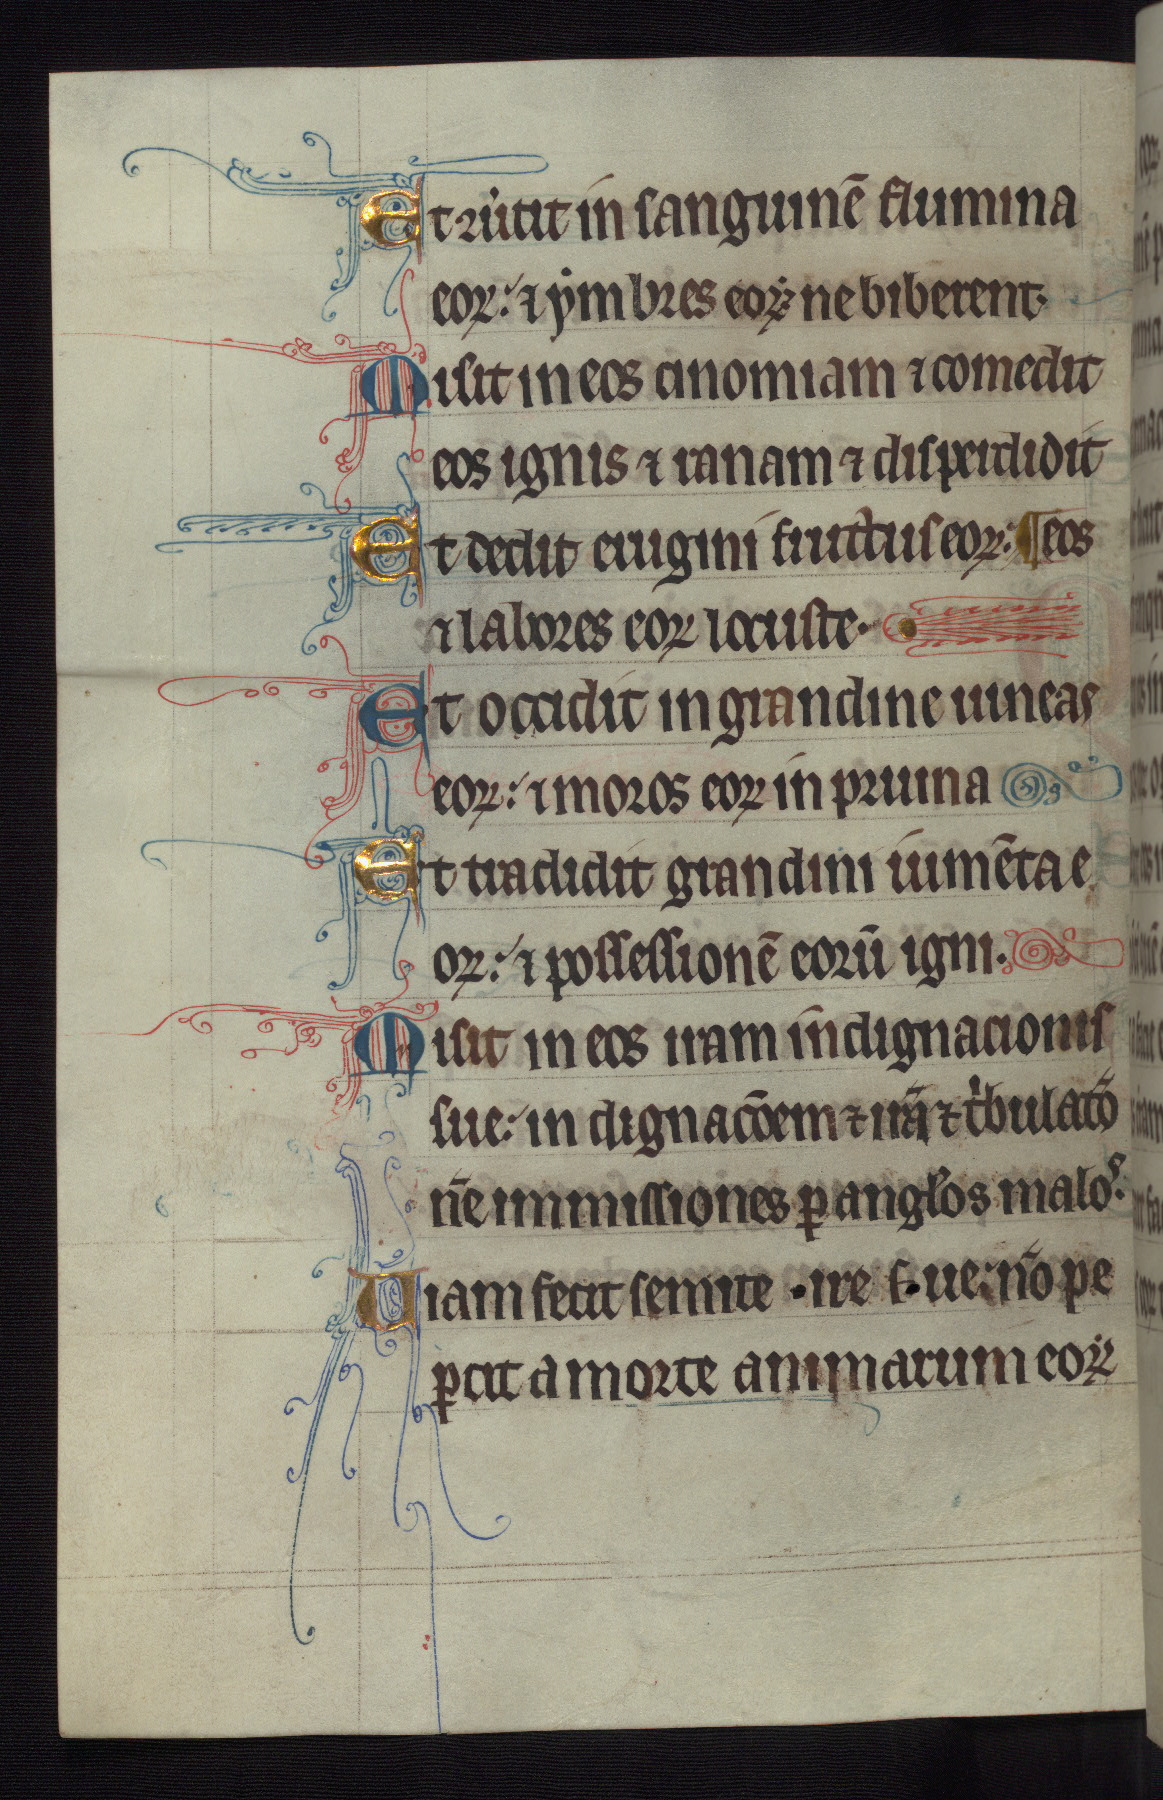 Et ꝯũtit in sanguinē flumina
eoꝝ: ⁊ ẏmbres eoꝝ ne biberent.
Misit in eos cinomiam ⁊ comedit
eos ignis ⁊ ranam ⁊ disperdidit
Et dedit erugini fructus eoꝝ: ¶ eos
⁊ labores eoꝝ locuste.
Et occidit in grandine uineas
eoꝝ: ⁊ moros eoꝝ in pruina
Et tradidit grandini iumēta e
oꝝ: ⁊ possessionē eorū igni.
Misit in eos iram indignacionis
sue: in dignacōem ⁊ irā ⁊ tͥbulatō
nē immissiones ꝑ angl̃os maloꝝ.
Uiam fecit semite ire sue: nō pe
ꝑcit a morte animarum eoꝝ